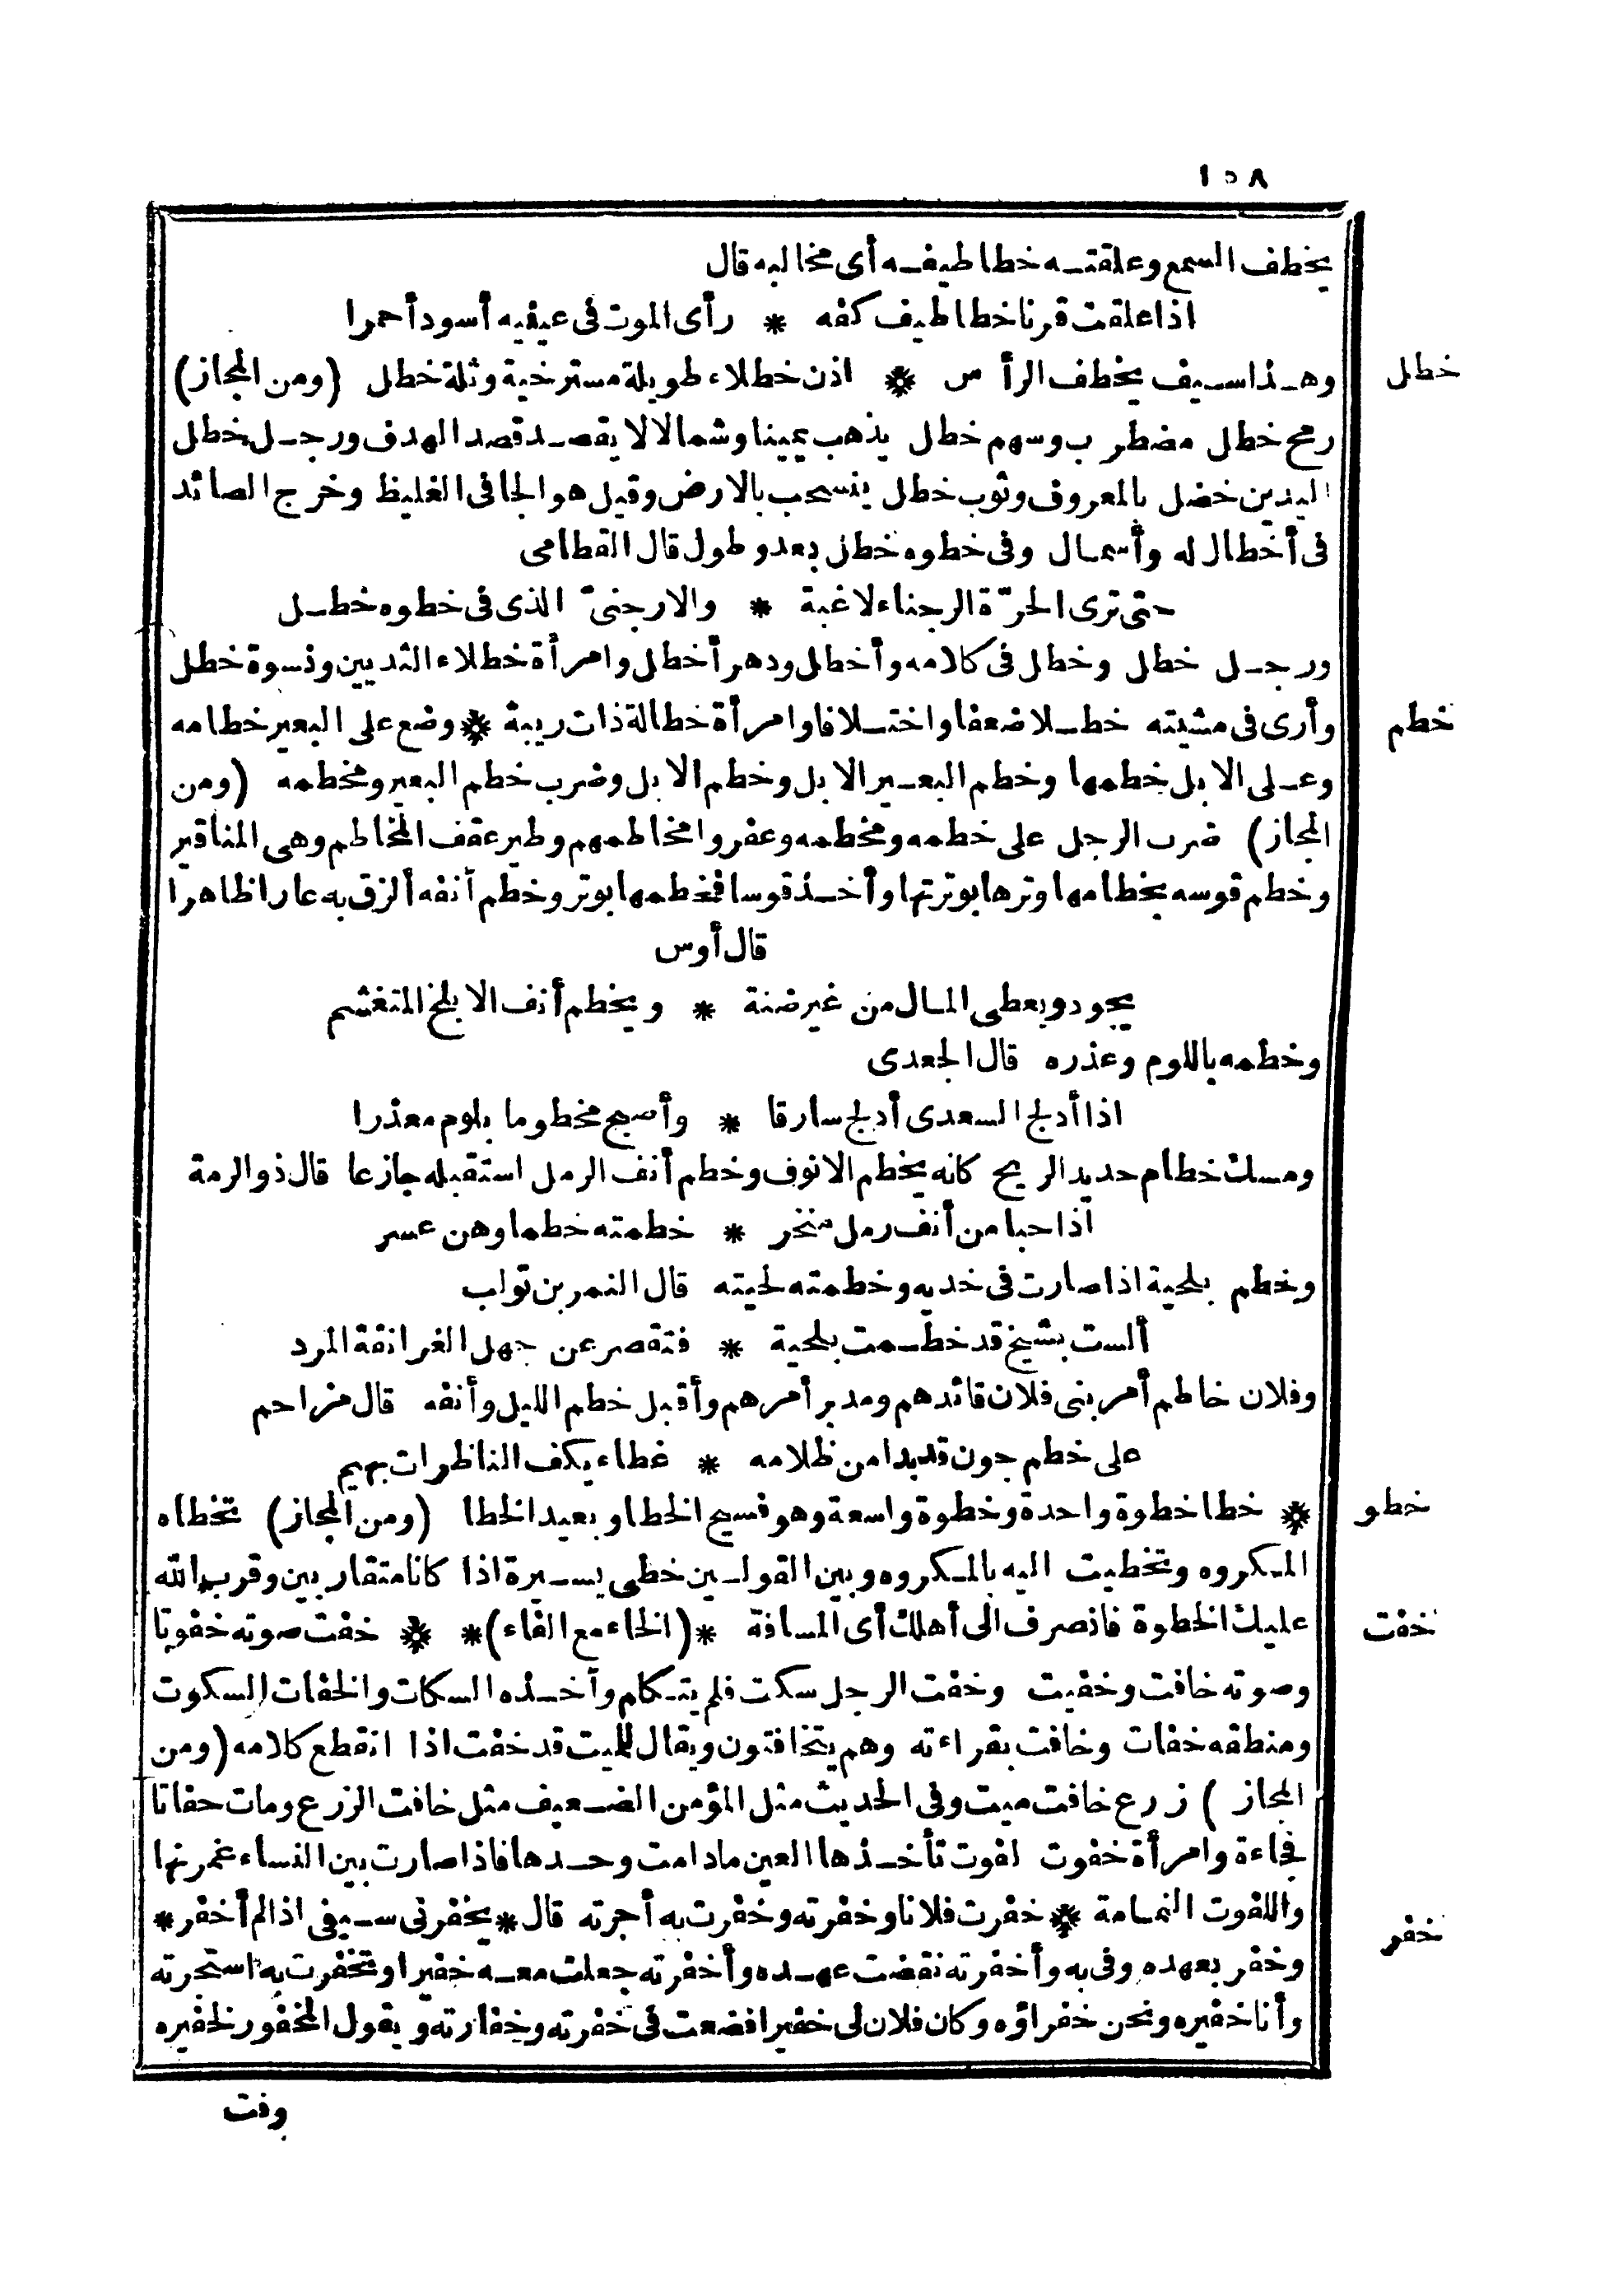 ١٥٨
يخطف السمع وعلقته خطاطيفه أى مخالبه قال
اذا علقت قرنا خطاطيف كفه * رأى الموت فى عينيه أسود أحمرا
خطل
وهذا سيف يخطف الرأس * اذن خطلاء طويلة مسترخية وثلة خطل (ومن المجاز)
رمح خطل مضطرب وسهم خطل يذهب يمينا وشمالا لا يقصد قصد الهدف ورجل خطل
اليدين خضل بالمعروف وثوب خطل ينسحب بالارض وقيل هو الجافى الغليظ وخرج الصائد
فى أخطال له وأسمال وفى خطوه خطل بعد وطول قال القطامى
حتى ترى الحرّة الرجناء لاغبة * والارجنىّ الذى فى خطوه خطل
ورجل خطل وخطل فى كلامه وأخطل ودهر أخطل وامرأة خطلاء الثديين ونسوة خطل
خطم
وأرى فى مشيته خطلا ضعفا واختلافا وامرأة خطالة ذات ريبة * وضع على البعير خطامه
وعلى الابل خطمها وخطم البعير الابل وخطم الابل وضرب خطم البعير ومخطمه (ومن
المجاز) ضرب الرجل على خطمه ومخطمه وعفروا مخاطمهم وطير عقف المخاطم وهى المناقير
وخطم قوسه بخطامها وترها بوترتها وأخذ قوسا فخطمها بوتر وخطم أنفه ألزق به عارا ظاهرا
قال أوس
يجود ويعطى المال من غير ضنة * ويخطم أنف الابلخ المتغشم
وخطمه باللوم وعذره قال الجعدى
اذا أدلج السعدى أدلج سارقا * وأصبح مخطوما بلوم معذرا
ومسك خطام حديد الريح كانه يخطم الانوف وخطم أنف الرمل استقبله جازعا قال ذو الرمة
اذا حبا من أنف رمل منخر * خطمته خطما وهن عسر
وخطم بلحية اذا صارت فى خديه وخطمته لحيته قال النمر بن تولب
ألست بشيخ قد خطمت بلحية * فتقصر عن جهل الغرانقة المرد
وفلان خاطم أمر بنى فلان قائدهم ومدبر أمرهم وأقبل خطم الليل وأنفه قال مزاحم
على خطم جون قد بدا من ظلامه * غطاء يكف الناظرات بهيم
خطو
* خطا خطوة واحدة وخطوة واسعة وهو فسيح الخطا وبعيد الخطا (ومن المجاز) تخطاه
المكروه وتخطيت اليه بالمكروه وبين القولين خطى يسيرة اذا كانا متقاربين وقرب الله
خفت
عليك الخطوة فانصرف الى أهلك أى المسافة *(الخاء مع الفاء)* * خفت صوته خفوتا
وصوته خافت وخفيت وخفت الرجل سكت فلم يتكلم وأخذه السكات والخفات السكوت
ومنطقه خفات وخافت بقراءته وهم يتخافتون ويقال للميت قد خفت اذا انقطع كلامه (ومن
المجاز) زرع خافت ميت وفى الحديث مثل المؤمن الضعيف مثل خافت الزرع ومات خفاتا
فجاءة وامرأة خفوت لفوت تأخذها العين مادامت وحدها فاذا صارت بين النساء غمرنها
خفر
واللفوت النمامة * خفرت فلانا وخفرته وخفرت به أجرته قال * يخفرنى سيفى اذا لم أخفر *
وخفر بعهده وفى به وأخفرته نقضت عهده وأخفرته جعلت معه خفيرا وتخفرت به استجرته
وأنا خفيره ونحن خفراؤه وكان فلان لى خفيرا فضعت فى خفرته وخفارته ويقول المخفور لخفيره
وفت